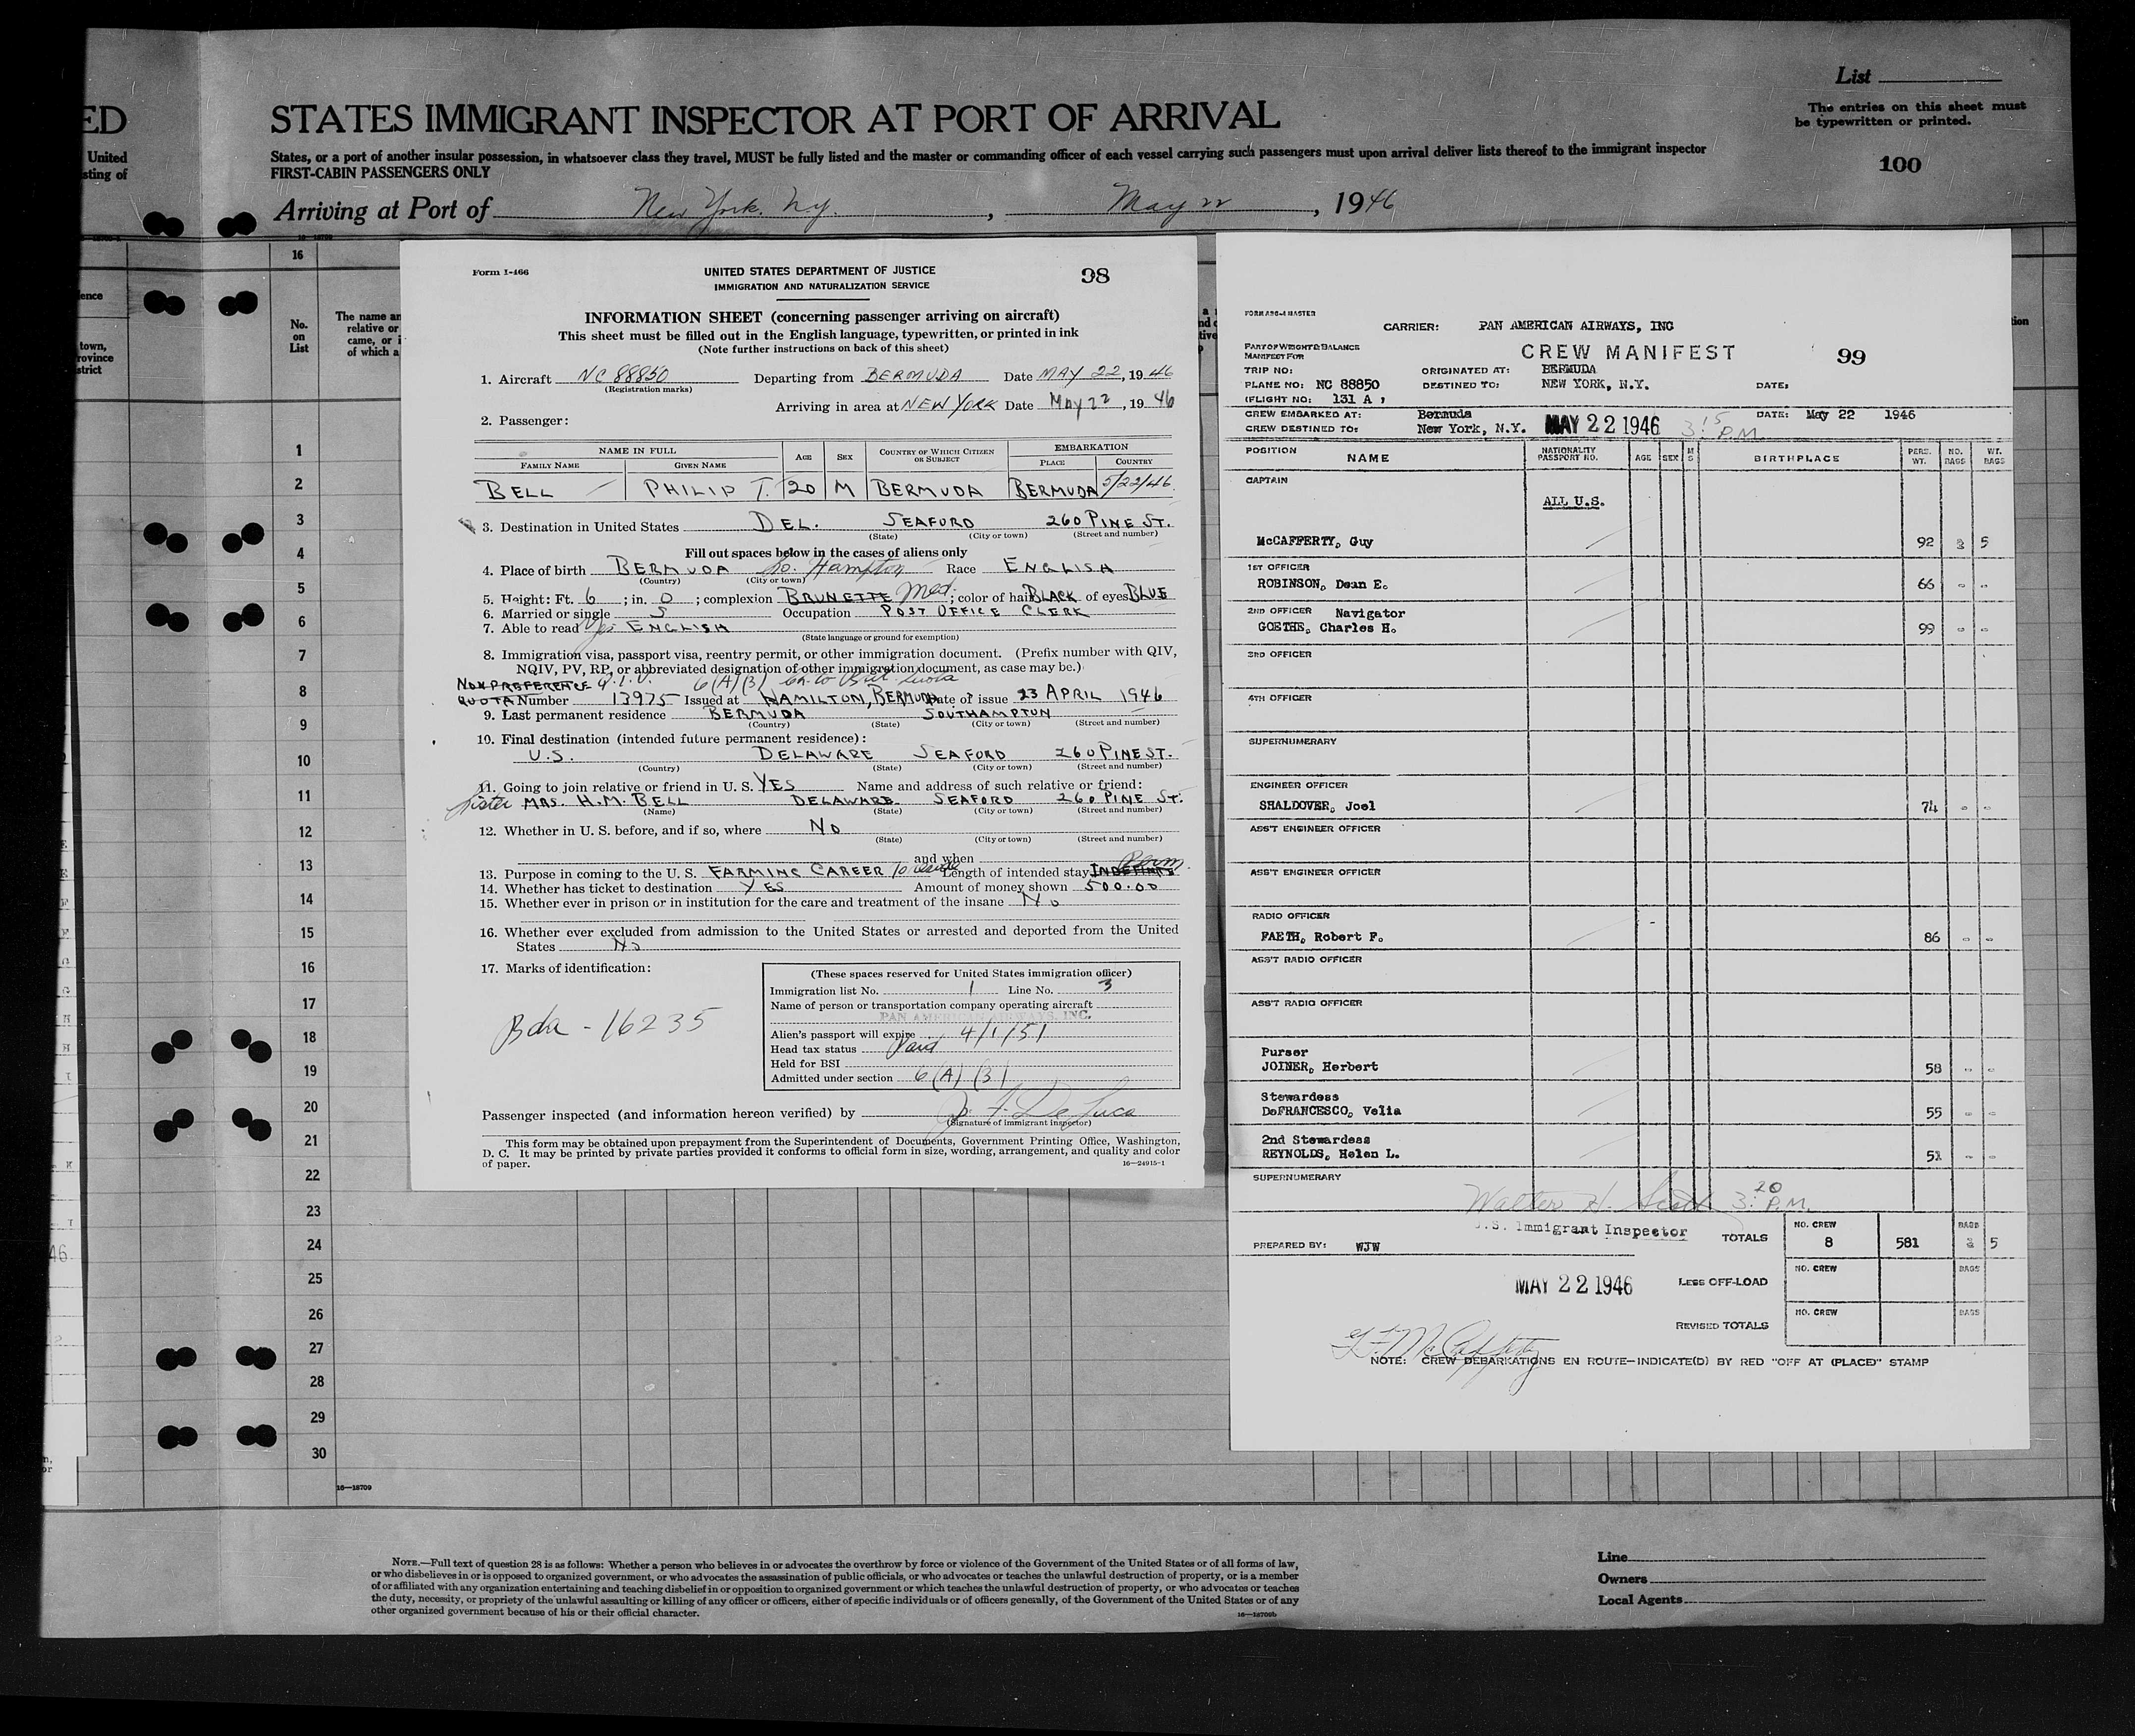 List
The entries on this sheet must
be typewritten or printed.
100
ED
STATES IMMIGRANT INSPECTOR AT PORT OF ARRIVAL
United
sting of
States, or a port of another insular possession, in whatsoever class they travel, MUST be fully listed and the master or commanding officer of each vessel carrying such passengers must upon arrival deliver lists thereof to the immigrant inspector
FIRST-CABIN PASSENGERS ONLY
Arriving at Port of New York. N.Y. , May 22 , 1946
16
No.
on
List
The name an
relative or
came, or i
of which a
ence
town,
rovince
strict
1
2
3
4
5
6
7
8
9
10
11
12
13
14
15
16
17
18
19
20
21
22
23
24
25
26
27
28
29
30
16—18709
Form I-466
UNITED STATES DEPARTMENT OF JUSTICE
98
IMMIGRATION AND NATURALIZATION SERVICE
INFORMATION SHEET (concerning passenger arriving on aircraft)
This sheet must be filled out in the English language, typewritten, or printed in ink
(Note further instructions on back of this sheet)
1. Aircraft NC 88850 Departing from BERMUDA Date MAY 22, 1946
(Registration marks)
Arriving in area at NEW YORK Date MAY 22, 1946
2. Passenger:
NAME IN FULL AGE SEX COUNTRY OF WHICH CITIZEN OR SUBJECT EMBARKATION
FAMILY NAME GIVEN NAME PLACE COUNTRY
BELL PHILIP T. 20 M BERMUDA BERMUDA 5/22/46
3. Destination in United States DEL. SEAFORD 260 PINE ST.
(State) (City or town) (Street and number)
Fill out spaces below in the cases of aliens only
4. Place of birth BERMUDA So. Hampton Race ENGLISH
(Country) (City or town)
5. Height: Ft. 6 ; in. 0 ; complexion BRUNETTE Med. ; color of hair BLACK of eyes BLUE
6. Married or single S Occupation POST OFFICE CLERK
7. Able to read Yes ENGLISH
(State language or ground for exemption)
8. Immigration visa, passport visa, reentry permit, or other immigration document. (Prefix number with QIV,
NQIV, PV, RP, or abbreviated designation of other immigration document, as case may be.)
NON PREFERENCE Q.I.V. 6(A)(3)
QUOTA Number 13975 Issued at HAMILTON, BERMUDA Date of issue 23 APRIL 1946
9. Last permanent residence BERMUDA SOUTHAMPTON
(Country) (State) (City or town) (Street and number)
10. Final destination (intended future permanent residence):
U.S. DELAWARE SEAFORD 260 PINE ST.
(Country) (State) (City or town) (Street and number)
11. Going to join relative or friend in U. S. YES Name and address of such relative or friend:
Sister MRS. H.M. BELL DELAWARE SEAFORD 260 PINE ST.
(Name) (State) (City or town) (Street and number)
12. Whether in U. S. before, and if so, where No
(State) (City or town) (Street and number)
and when
13. Purpose in coming to the U. S. FARMING CAREER To reside Length of intended stay INDEFINITE Perm
14. Whether has ticket to destination YES Amount of money shown 500.00
15. Whether ever in prison or in institution for the care and treatment of the insane No
16. Whether ever excluded from admission to the United States or arrested and deported from the United
States No
17. Marks of identification:
Bda - 16235
(These spaces reserved for United States immigration officer)
Immigration list No. 1 Line No. 3
Name of person or transportation company operating aircraft
PAN AMERICAN AIRWAYS, INC.
Alien's passport will expire 4/1/51
Head tax status Paid
Held for BSI
Admitted under section 6(A)(3)
Passenger inspected (and information hereon verified) by J. F. De Luca
(Signature of immigrant inspector)
This form may be obtained upon prepayment from the Superintendent of Documents, Government Printing Office, Washington,
D. C. It may be printed by private parties provided it conforms to official form in size, wording, arrangement, and quality and color
of paper.
16—24915-1
CARRIER: PAN AMERICAN AIRWAYS, INC
PART OF WEIGHT & BALANCE
MANIFEST FOR
CREW MANIFEST
99
TRIP NO: ORIGINATED AT: BERMUDA
PLANE NO: NC 88850 DESTINED TO: NEW YORK, N.Y. DATE:
(FLIGHT NO: 131 A ,
CREW EMBARKED AT: Bermuda DATE: May 22 1946
CREW DESTINED TO: New York, N.Y. MAY 22 1946 3:15 P.M.
POSITION NAME NATIONALITY PASSPORT NO. AGE SEX M S BIRTHPLACE PERS. WT. NO. BAGS WT. BAGS
CAPTAIN
ALL U.S.
McCAFFERTY, Guy 92 5
1ST OFFICER
ROBINSON, Dean E. 66 - -
2ND OFFICER Navigator
GOETHE, Charles H. 99 - -
3RD OFFICER
4TH OFFICER
SUPERNUMERARY
ENGINEER OFFICER
SHALDOVER, Joel 74 - -
ASS'T ENGINEER OFFICER
ASS'T ENGINEER OFFICER
RADIO OFFICER
FAETH, Robert F. 86 - -
ASS'T RADIO OFFICER
ASS'T RADIO OFFICER
Purser
JOINER, Herbert 58 - -
Stewardess
DeFRANCESCO, Velia 55 - -
2nd Stewardess
REYNOLDS, Helen L. 51 - -
SUPERNUMERARY
Walter H. Scott 3:20 P.M.
U.S. Immigrant Inspector
TOTALS NO. CREW 8 581 BAGS 5
PREPARED BY: WJW
MAY 22 1946
LESS OFF-LOAD NO. CREW BAGS
REVISED TOTALS NO. CREW BAGS
G.F. McCafferty
NOTE: CREW DEBARKATIONS EN ROUTE—INDICATE(D) BY RED "OFF AT (PLACE)" STAMP
NOTE.—Full text of question 28 is as follows: Whether a person who believes in or advocates the overthrow by force or violence of the Government of the United States or of all forms of law,
or who disbelieves in or is opposed to organized government, or who advocates the assassination of public officials, or who advocates or teaches the unlawful destruction of property, or is a member
of or affiliated with any organization entertaining and teaching disbelief in or opposition to organized government or which teaches the unlawful destruction of property, or who advocates or teaches
the duty, necessity, or propriety of the unlawful assaulting or killing of any officer or officers, either of specific individuals or of officers generally, of the Government of the United States or of any
other organized government because of his or their official character.
16—18709b
Line
Owners
Local Agents